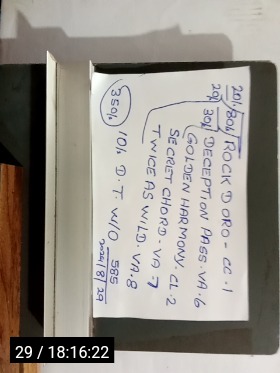 20% 80% ROCK D ORO - CC. 1
20% 30% DECEPTION PASS. VA. 6
GOLDEN HARMONY. CL. 2
SECRET CHORD - VA - 7
TWICE AS WILD. VA. 8
350% 10% D.T. W/O 585
2024/8/29
29 / 18:16:22